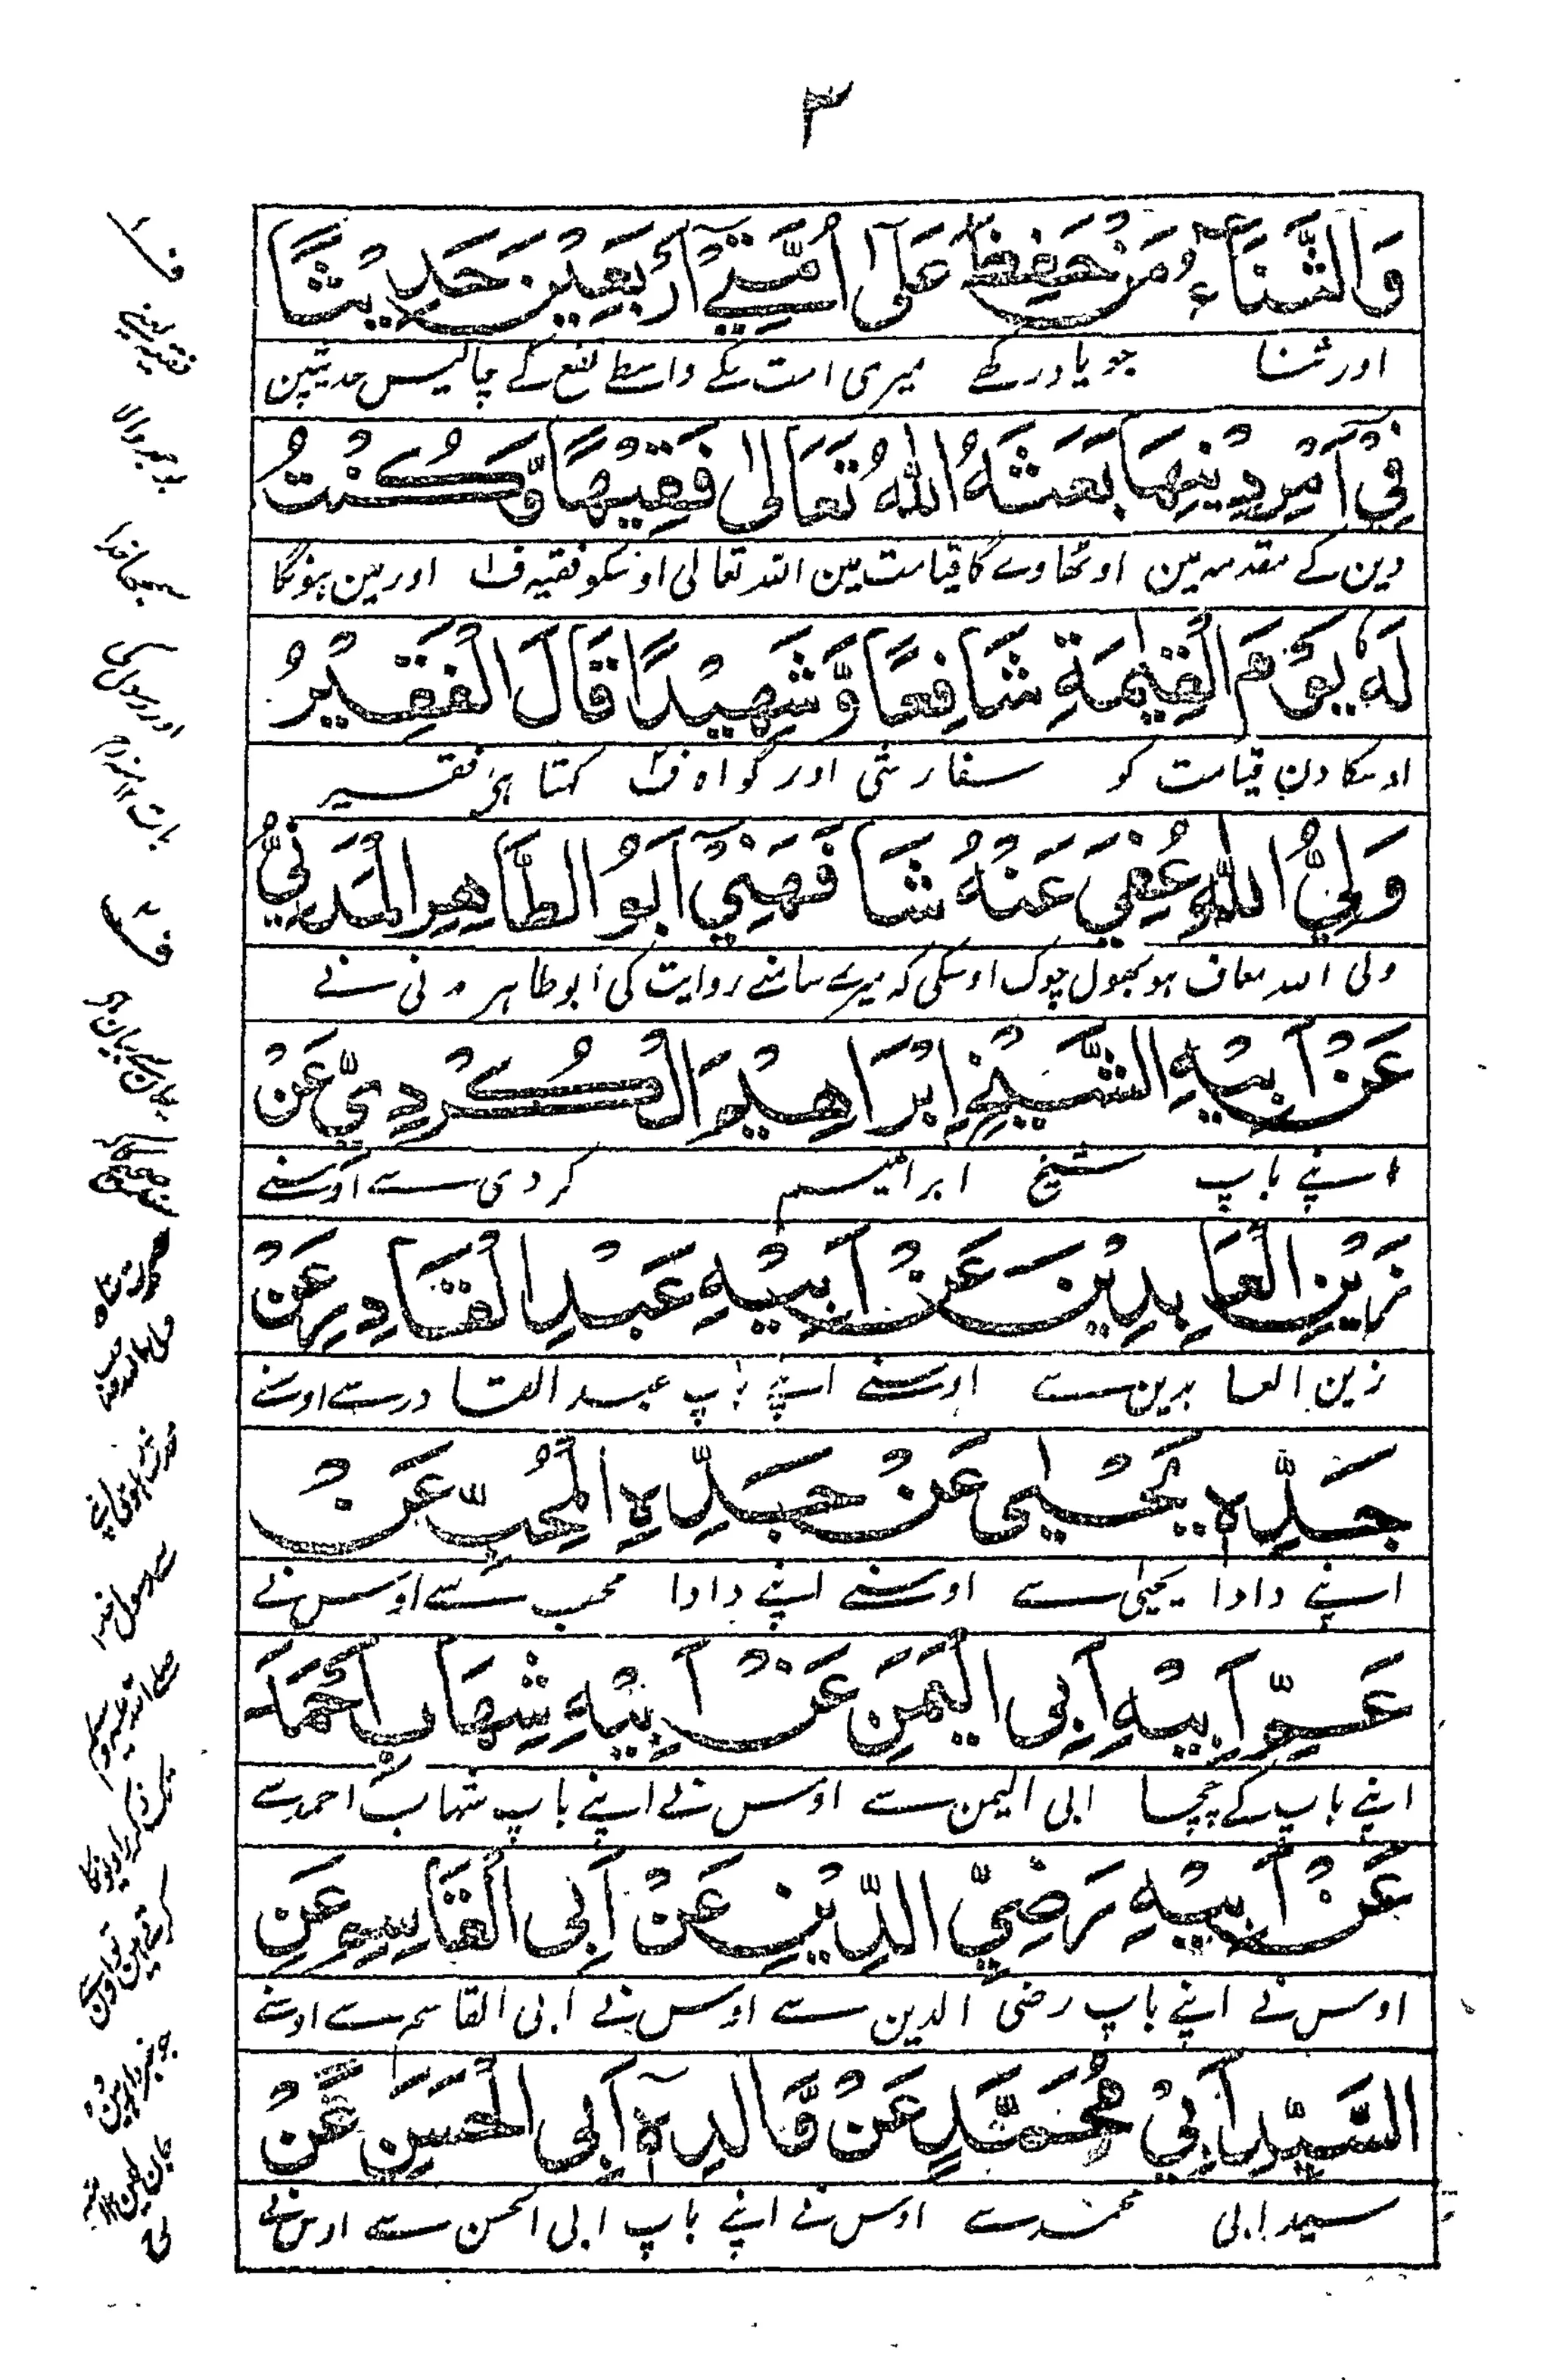 ٣
وَالثَّنَاءُ مَنْ حَفِظَ عَلَىٰٓ اُمَّتِيْٓ اَرْبَعِيْنَ حَدِيْثًا
اور ثنا جو یاد رکھے میری امت کے واسطے نفع کے چالیس حدیثین
فِيْٓ اَمْرِ دِيْنِهَا بَعَثَهُ اللهُ تَعَالٰى فَقِيْهًا وَّكُنْتُ
دین کے مقدمہ مین اوٹھاوے گا قیامت مین اللہ تعالی اوسکو فقیہ ف۱ اور مین ہونگا
لَهٗ يَوْمَ الْقِيٰمَةِ شَافِعًا وَّشَهِيْدًا قَالَ الْفَقِيْرُ
اوسکا دن قیامت کو سفارشی اور گواہ ف۲ کہتا ہی فقیر
وَلِيُّ اللهِ عُفِيَ عَنْهُ شَافَهَنِيْٓ اَبُو الطَّاهِرِ الْمَدَنِيُّ
ولی اللہ معاف ہو بھول چوک اوسکی کہ میرے سامنے روایت کی ابو طاہر مدنی نے
عَنْ اَبِيْهِ الشَّيْخِ اِبْرَاهِيْمَ الْكُرْدِيِّ عَنْ
اپنے باپ شیخ ابراہیم کردی سے اوسنے
زَيْنِ الْعَابِدِيْنَ عَنْ اَبِيْهِ عَبْدِ الْقَادِرِ عَنْ
زین العابدین سے اوسنے اپنے باپ عبد القادر سے اوسنے
جَدِّهٖ يَحْيٰى عَنْ جَدِّهِ الْمُحِبِّ عَنْ
اپنے دادا یحیٰی سے اوسنے اپنے دادا محب سے اوس نے
عَمِّ اَبِيْهِ اَبِى الْيَمَنِ عَنْ اَبِيْهِ شِهَابِ اَحْمَدَ
اپنے باپ کے چچا ابی الیمن سے اوس نے اپنے باپ شہاب احمد سے
عَنْ اَبِيْهِ رَضِيِّ الدِّيْنِ عَنْ اَبِى الْقَاسِمِ عَنِ
اوس نے اپنے باپ رضی الدین سے اوس نے ابی القاسم سے اوسنے
السَّيِّدِ اَبِيْ مُحَمَّدٍ عَنْ وَّالِدِهٖٓ اَبِى الْحَسَنِ عَنْ
سید ابی محمد سے اوس نے اپنے باپ ابی الحسن سے اوس نے
ف۱
فقیہ یعنی
اور رسول کی
ف۲
حضرت شاہ
سے رسول خدا
صلے اللہ علیہ وسلم